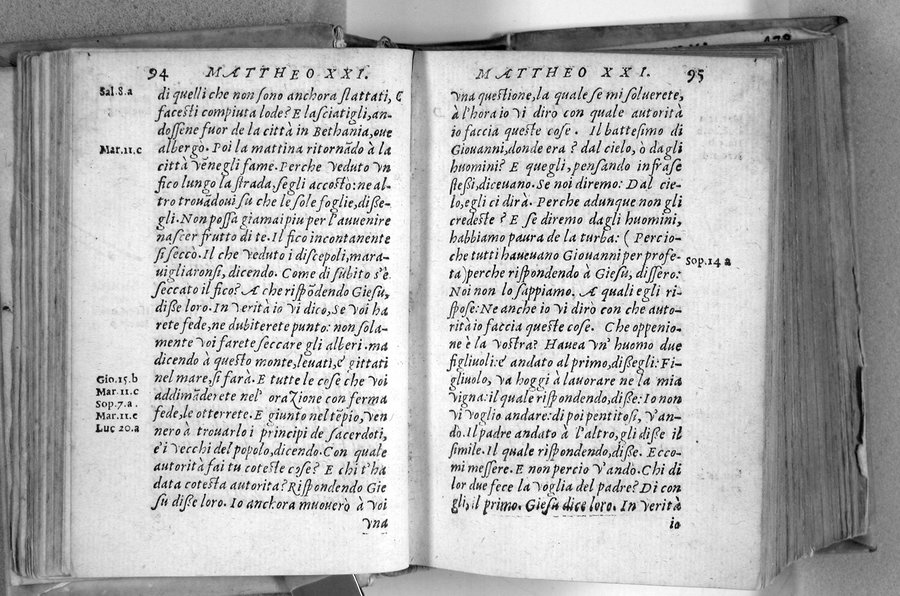 94 MATTHEO XXI.
Sal.8.a
di quelli che non sono anchora slattati, C
facesti compiuta lode? E lasciatigli, an-
dossene fuor de la città in Bethania, oue
Mar.11.c
albergò. Poi la mattina ritornãdo à la
città vẽnegli fame. Perche veduto vn
fico lungo la strada, segli accostò: ne al-
tro trouãdoui su che le sole foglie, disse-
gli. Non possà giamai piu per l'auuenire
nascer frutto di te. Il fico incontanente
si seccò. Il che veduto i discepoli, mara-
uigliaronsi, dicendo. Come di subito s'è
seccato il fico? A che rispõdendo Giesu,
disse loro. In verità io vi dico, se voi ha
rete fede, ne dubiterete punto: non sola-
mente voi farete seccare gli alberi. ma
dicendo à questo monte, leuati, e' gittati
Gio.15.b
nel mare, si farà. E tutte le cose che voi
Mar.11.c
addimãderete nel' orazione con ferma
Sop.7.a.
fede, le otterrete. E giunto nel tẽpio, ven
Mar.11.e
nero à trouarlo i principi de sacerdoti,
Luc 20.a
e' i vecchi del popolo, dicendo. Con quale
autorità fai tu coteste cose? E chi t'ha
data cotesta autorita? Rispondendo Gie
su disse loro. Io anchora muouerò à voi
vna
MATTHEO XXI. 95
vna questione, la quale se mi soluerete,
à l'hora io vi dirò con quale autorità
io faccia queste cose. Il battesimo di
Giouanni, donde era? dal cielo, ò dagli
huomini? E quegli, pensando infra se
stessi, diceuano. Se noi diremo: Dal cie-
lo, egli ci dirà. Perche adunque non gli
credeste? E se diremo dagli huomini,
habbiamo paura de la turba: (Percio-
che tutti haueuano Giouanni per profe-
Sop.14 a
ta) perche rispondendo à Giesu, dissero:
Noi non lo sappiamo. A quali egli ri-
spose: Ne anche io vi dirò con che auto-
rità io faccia queste cose. Che oppenio-
ne è la vostra? Hauea vn' huomo due
figliuoli: e' andato al primo, dissegli: Fi-
gliuolo, va hoggi à lauorare ne la mia
vigna: il quale rispondendo, disse: Io non
vi voglio andare: di poi pentitosi, v'an-
dò. Il padre andato à l'altro, gli disse il
simile. Il quale rispondendo, disse. Ecco-
mi messere. E non percio v'andò. Chi di
lor due fece la voglia del padre? Di con
gli, il primo. Giesu dice loro. In verità
io